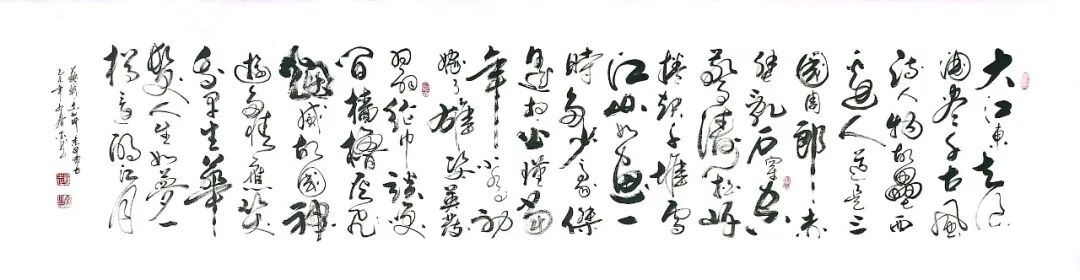 大江東去浪
淘盡千古風
流人物故壘西
邊人道是三
國周郎赤
壁亂石穿空
驚濤拍岸
捲起千堆雪
江山如畫一
時多少豪傑
遙想公瑾當
年小喬初
嫁了雄姿英發
羽扇綸巾談笑
間檣櫓灰飛
煙滅故國神
遊多情應笑
我早生華
髮人生如夢一
樽還酹江月